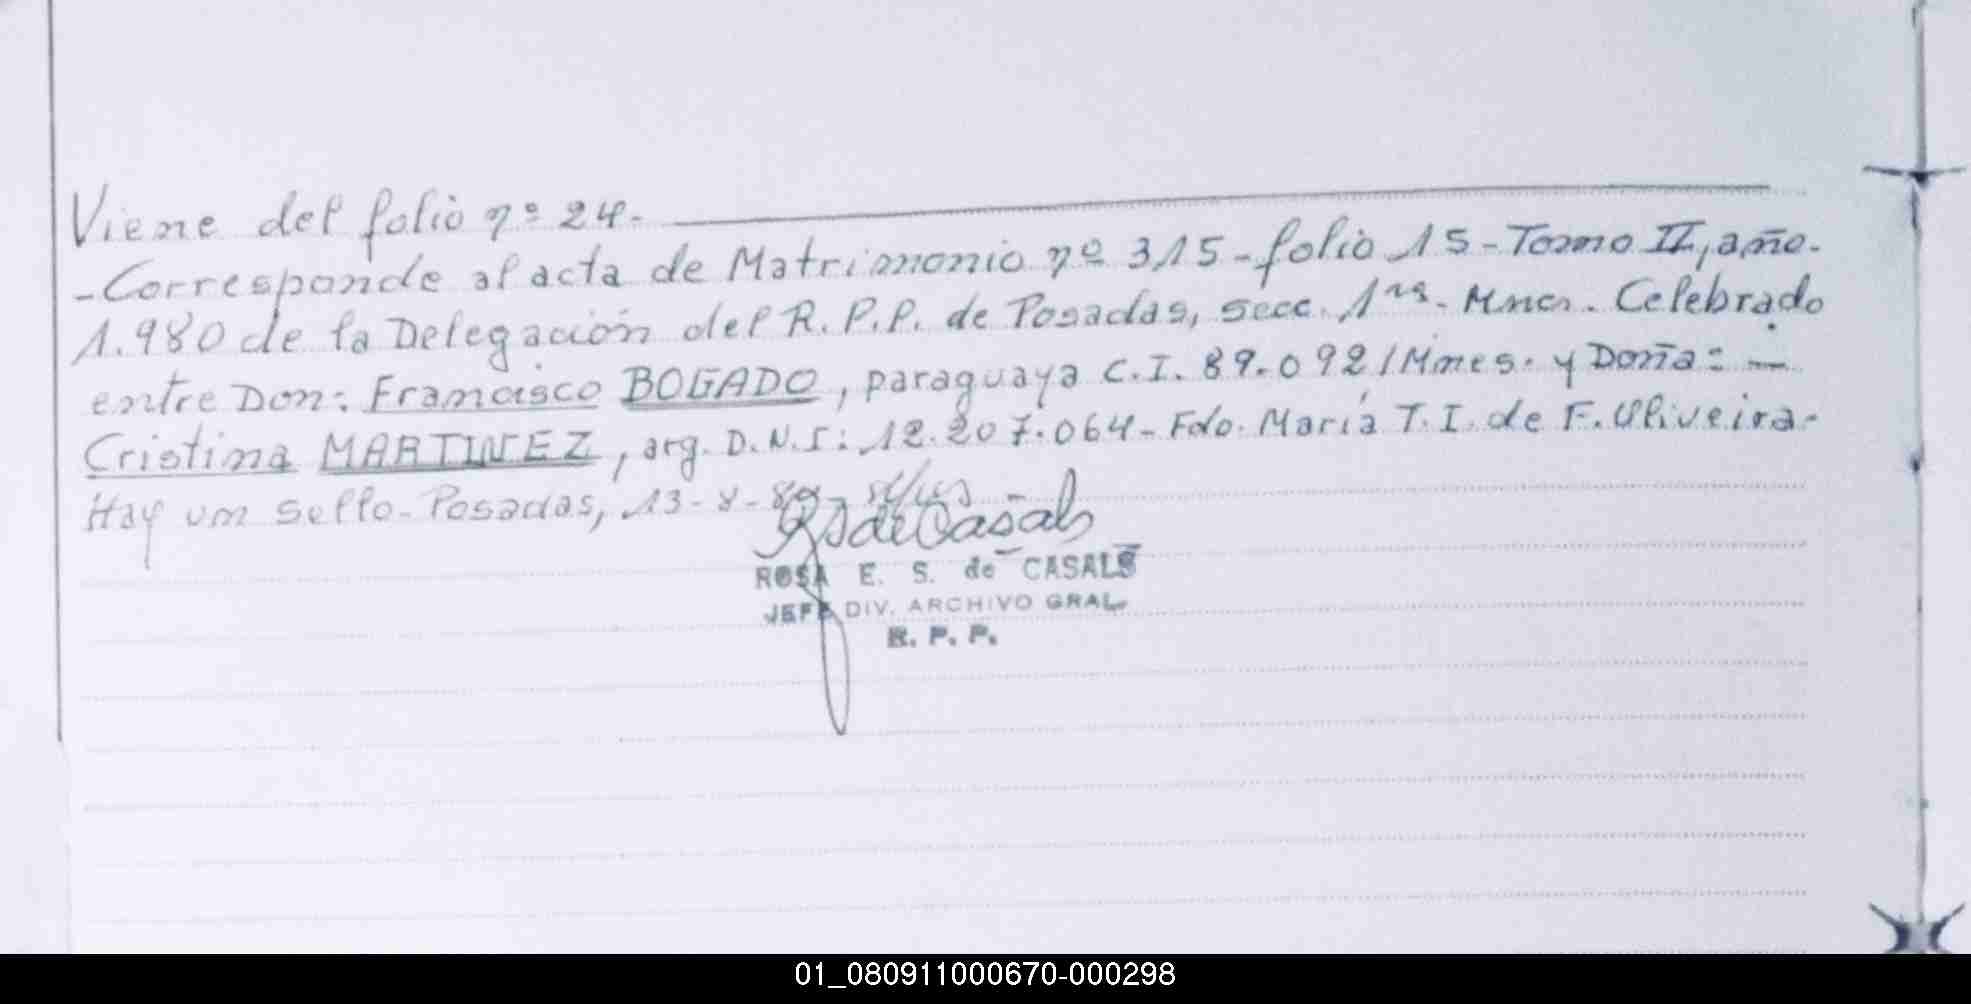 Viene del folio nº 24.
-Corresponde al acta de Matrimonio nº 315-folio 15-Tomo II, año.
1.980 de la Delegación del R.P.P. de Posadas, secc. 1ra. Mnes. Celebrado
entre Don: Francisco BOGADO, paraguaya C.I. 89.092/Mnes. y Doña: —
Cristina MARTINEZ, arg. D.N.I: 12.207.064-Fdo. María T.I. de F. Oliveira.
Hay un sello-Posadas, 13-8-
RS de Casals
ROSA E. S. de CASALS
JEFE DIV. ARCHIVO GRAL.
R. P. P.
01_080911000670-000298